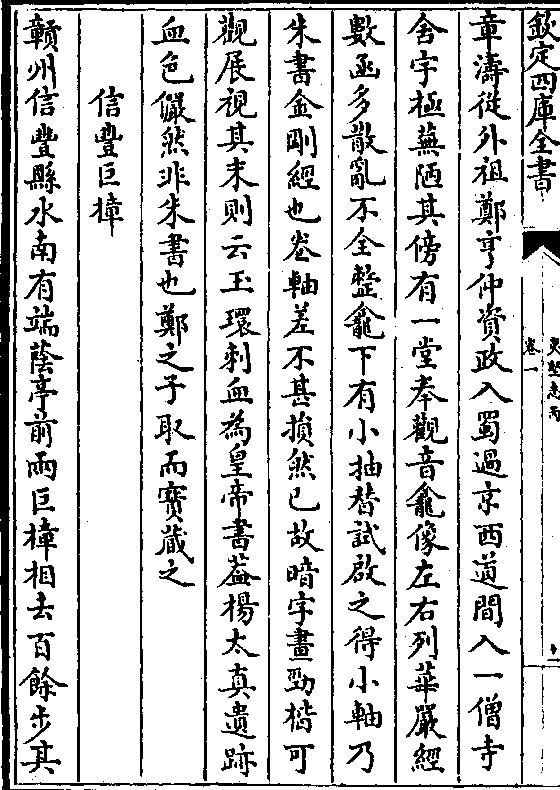 欽定四庫全書
夷堅志丙
卷一
章濤從外祖鄭亨仲資政入蜀過京西道間入一僧寺
舍宇極蕪陋其傍有一堂奉觀音龕像左右列華嚴經
數函多散亂不全整龕下有小抽替試啟之得小軸乃
朱書金剛經也卷軸差不甚損然已故暗字畫勁楷可
觀展視其末則云玉環刺血為皇帝書葢楊太真遺跡
血色儼然非朱書也鄭之子取而寶藏之
信豐巨樟
贛州信豐縣水南有端蔭亭前兩巨樟相去百餘步其